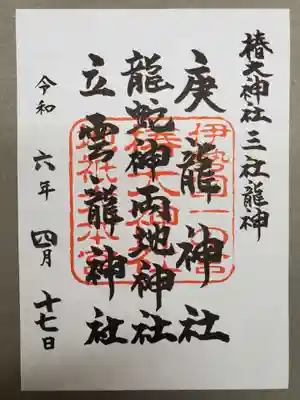 椿大神社 三社龍神
庚龍神社
龍蛇神雨地神社
立雲龍神社
令和六年四月十七日